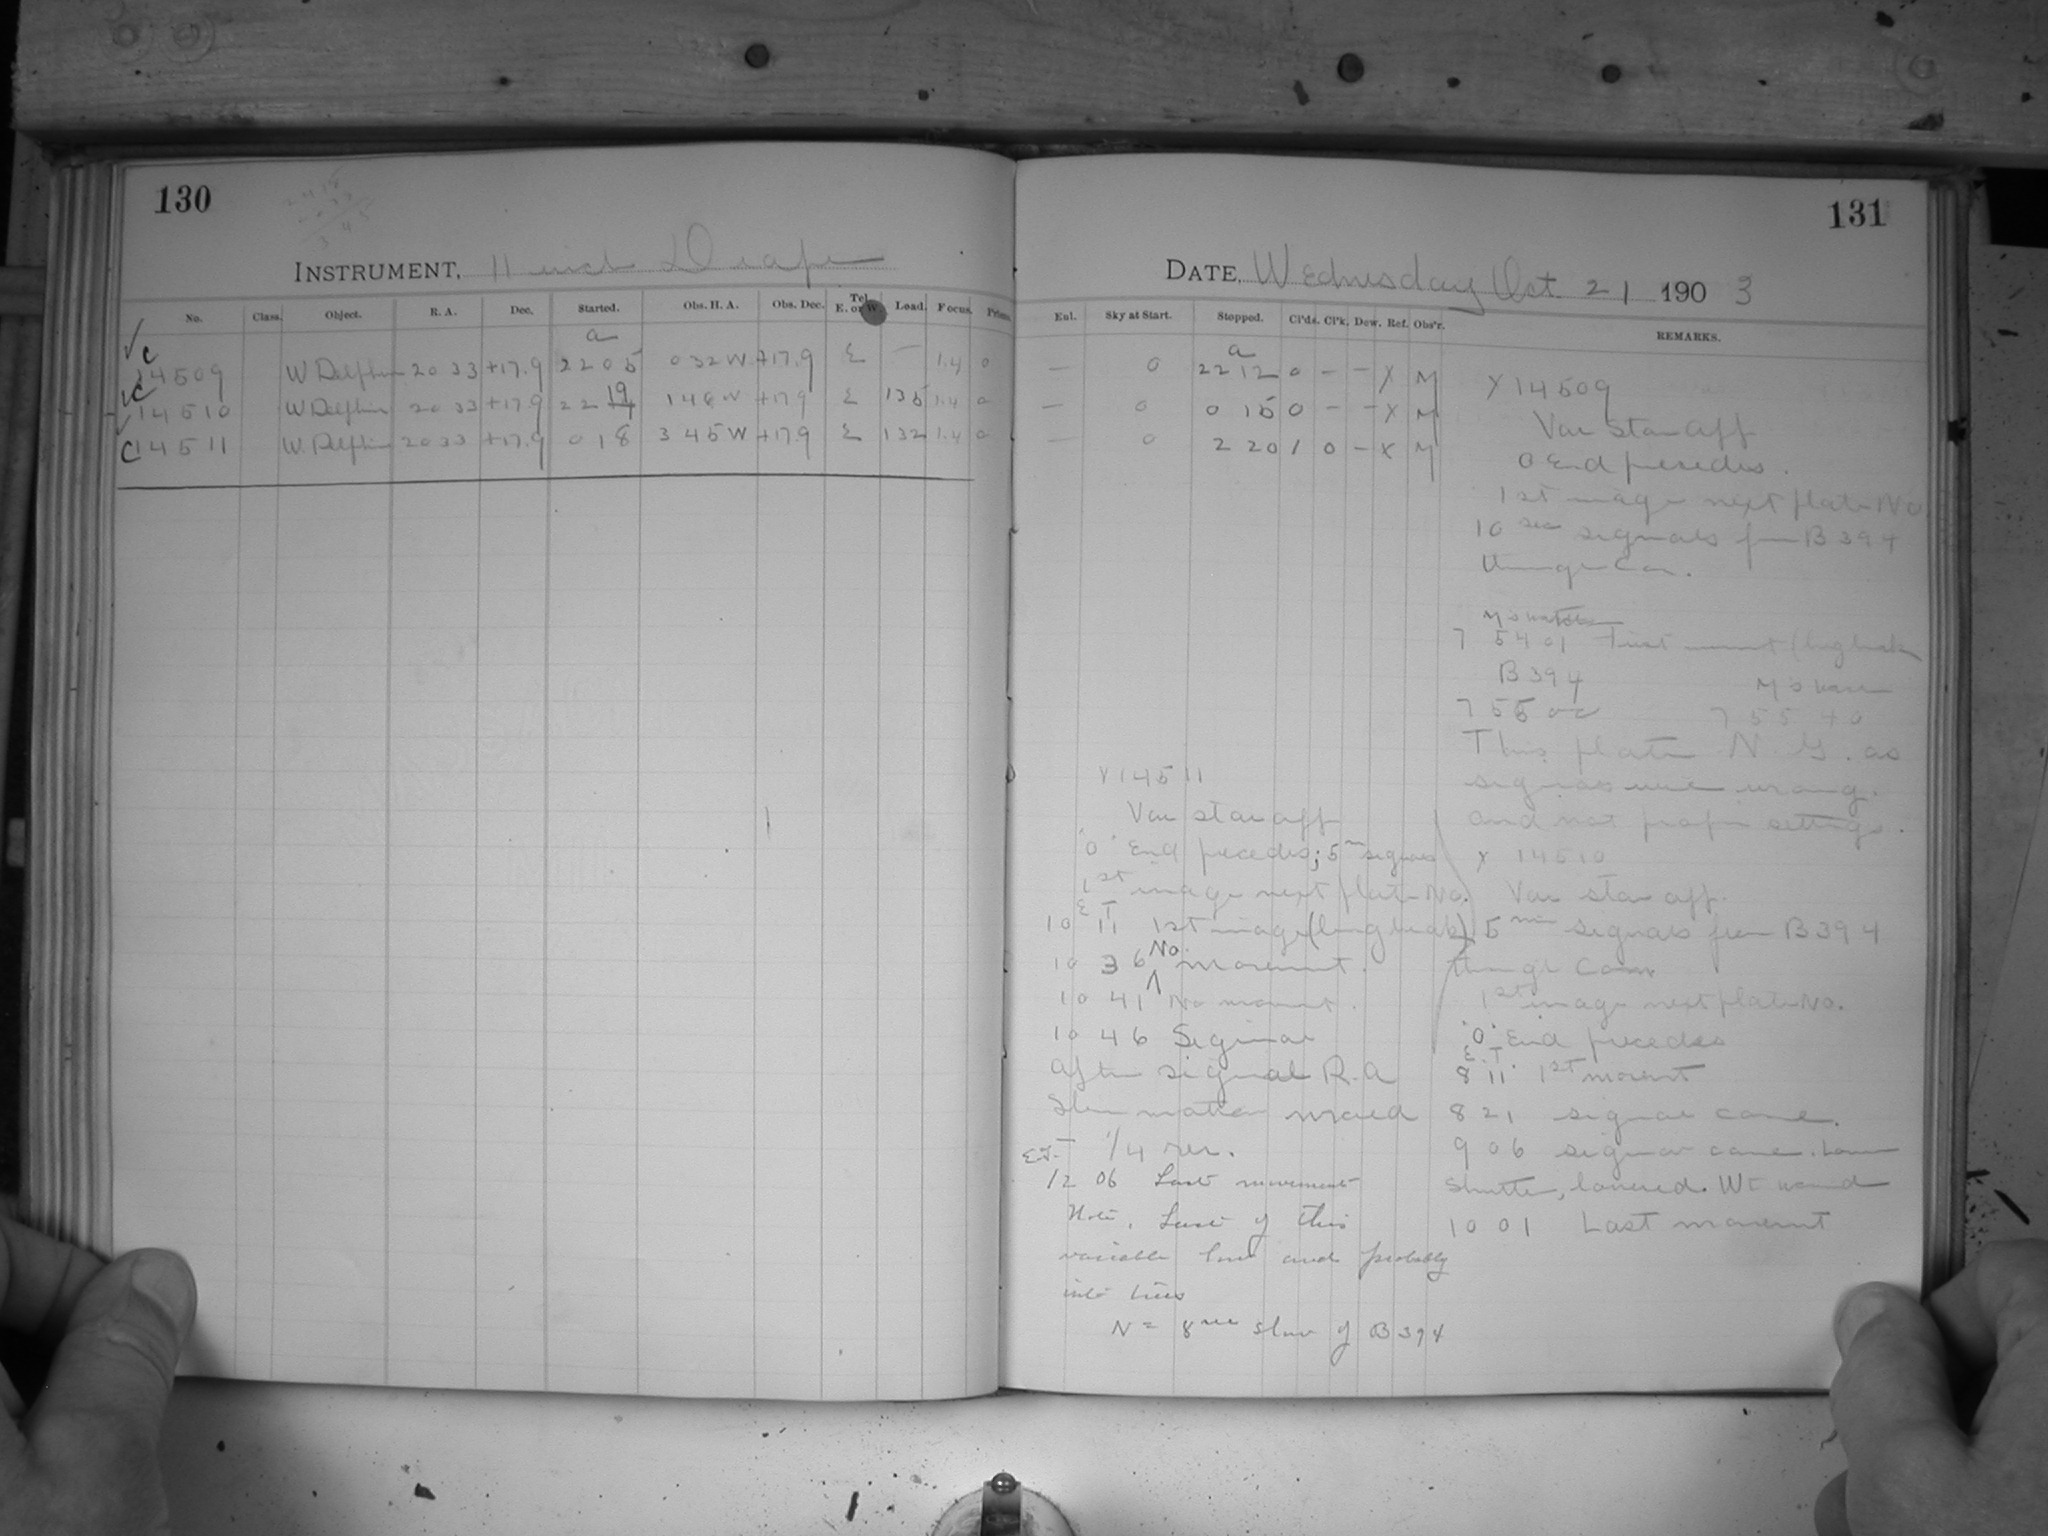 130
INSTRUMENT, 11 inch Draper
No. Class. Object. R. A. Dec. Started. Obs. H. A. Obs. Dec. Tel. E. or W. Load. Focus. Prism.
a
C 14509 W Delphini 20 33 +17.9 22 05 0 32 W +17.9 E — 1.4 0
C 14510 W Delphini 20 33 +17.9 22 19 1 46 W +17.9 E 135 1.4 0
C 14511 W. Delphini 20 33 +17.9 0 18 3 45 W +17.9 E 132 1.4 0
131
DATE, Wednesday Oct 21 1903
Eul. Sky at Start. Stopped. Cl'ds. Cl'k. Dew. Ref. Obs'r. REMARKS.
a
— 0 22 12 0 — — X M
— 0 0 15 0 — — X M
— 0 2 20 1 0 — X M
X 14509
Var star aff
0 End precedes.
1st image next plate No
10 sec signals from B 394
through Com.
M's watch
7 54 01 First movement (long break
B 394 M's watch
7 55 00 7 55 40
This plate N. G. as
signals were wrong.
and not proper settings.
X 14510
Var star aff.
5 min signals from B 394
through Com
1st image next plate No.
"0" End precedes
E. T.
8 11 1st movement
8 21 signal came.
9 06 signal came. Lower
shutter, lowered. W
10 01 Last movement
X 14511
Var star aff
"0" End precedes; 5 m signals
1st image next plate No.
E T
10 11 1st image (long break)
10 36 No movement.
10 41 No movement.
10 46 Signal
After signal R. A
Slow motion moved
1/4 rev.
E.T.
12 06 Last movement
Note, Last of this
variable low and probably
into trees
N = 8 sec slow of B 394